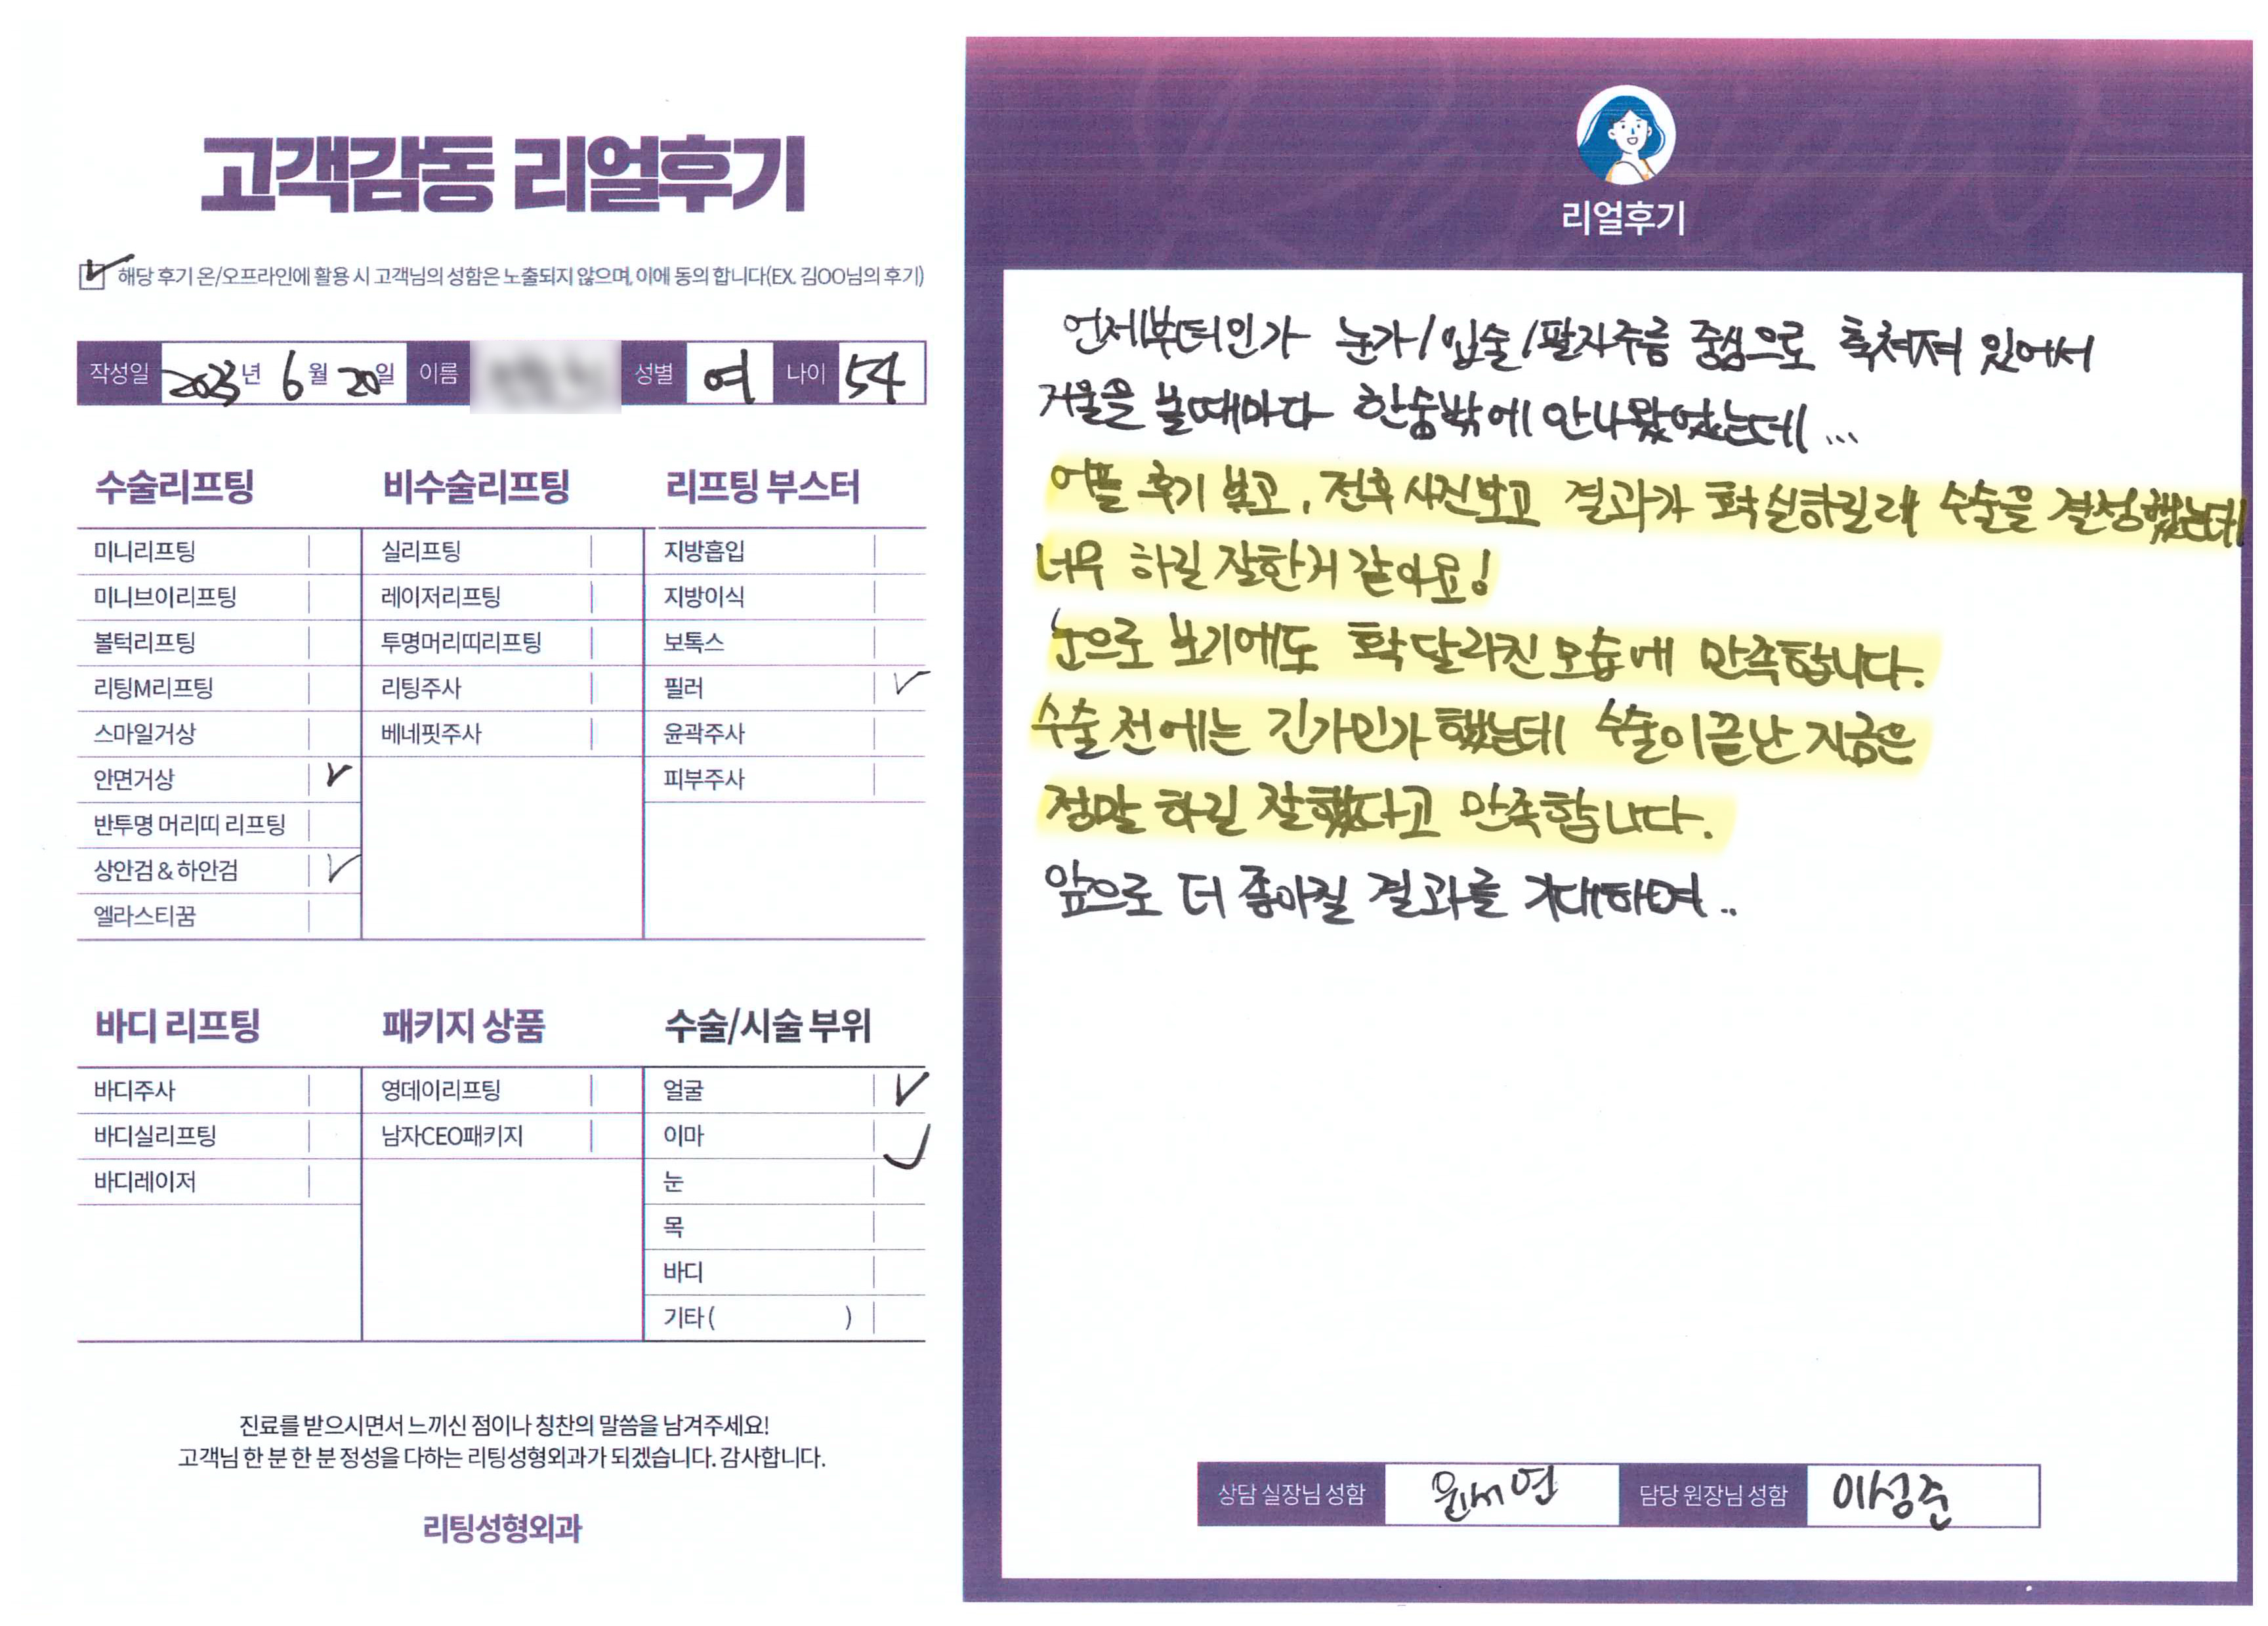 고객감동 리얼후기
해당 후기 온/오프라인에 활용 시 고객님의 성함은 노출되지 않으며, 이에 동의 합니다(EX. 김OO님의 후기)
작성일 2023년 6월 20일 이름 성별 여 나이 54
수술리프팅
미니리프팅
미니브이리프팅
볼턱리프팅
리팅M리프팅
스마일거상
안면거상 ✓
반투명 머리띠 리프팅
상안검 & 하안검 ✓
엘라스티꿈
비수술리프팅
실리프팅
레이저리프팅
투명머리띠리프팅
리팅주사
베네핏주사
리프팅 부스터
지방흡입
지방이식
보톡스
필러 ✓
윤곽주사
피부주사
바디 리프팅
바디주사
바디실리프팅
바디레이저
패키지 상품
영데이리프팅
남자CEO패키지
수술/시술 부위
얼굴 ✓
이마 ✓
눈
목
바디
기타 ( )
진료를 받으시면서 느끼신 점이나 칭찬의 말씀을 남겨주세요!
고객님 한 분 한 분 정성을 다하는 리팅성형외과가 되겠습니다. 감사합니다.
리팅성형외과
리얼후기
언제부터인가 눈가/입술/팔자주름 중심으로 축쳐져 있어서
거울을 볼때마다 한숨밖에 안나왔었는데...
어플 후기 보고, 전후 사진보고 결과가 확실하길래 수술을 결정했는데
너무 하길 잘한거 같아요!
눈으로 보기에도 확 달라진 모습에 만족합니다.
수술 전에는 긴가민가 했는데 수술이 끝난 지금은
정말 하길 잘했다고 만족합니다.
앞으로 더 좋아질 결과를 기대하며..
상담 실장님 성함 윤서연 담당 원장님 성함 이성준